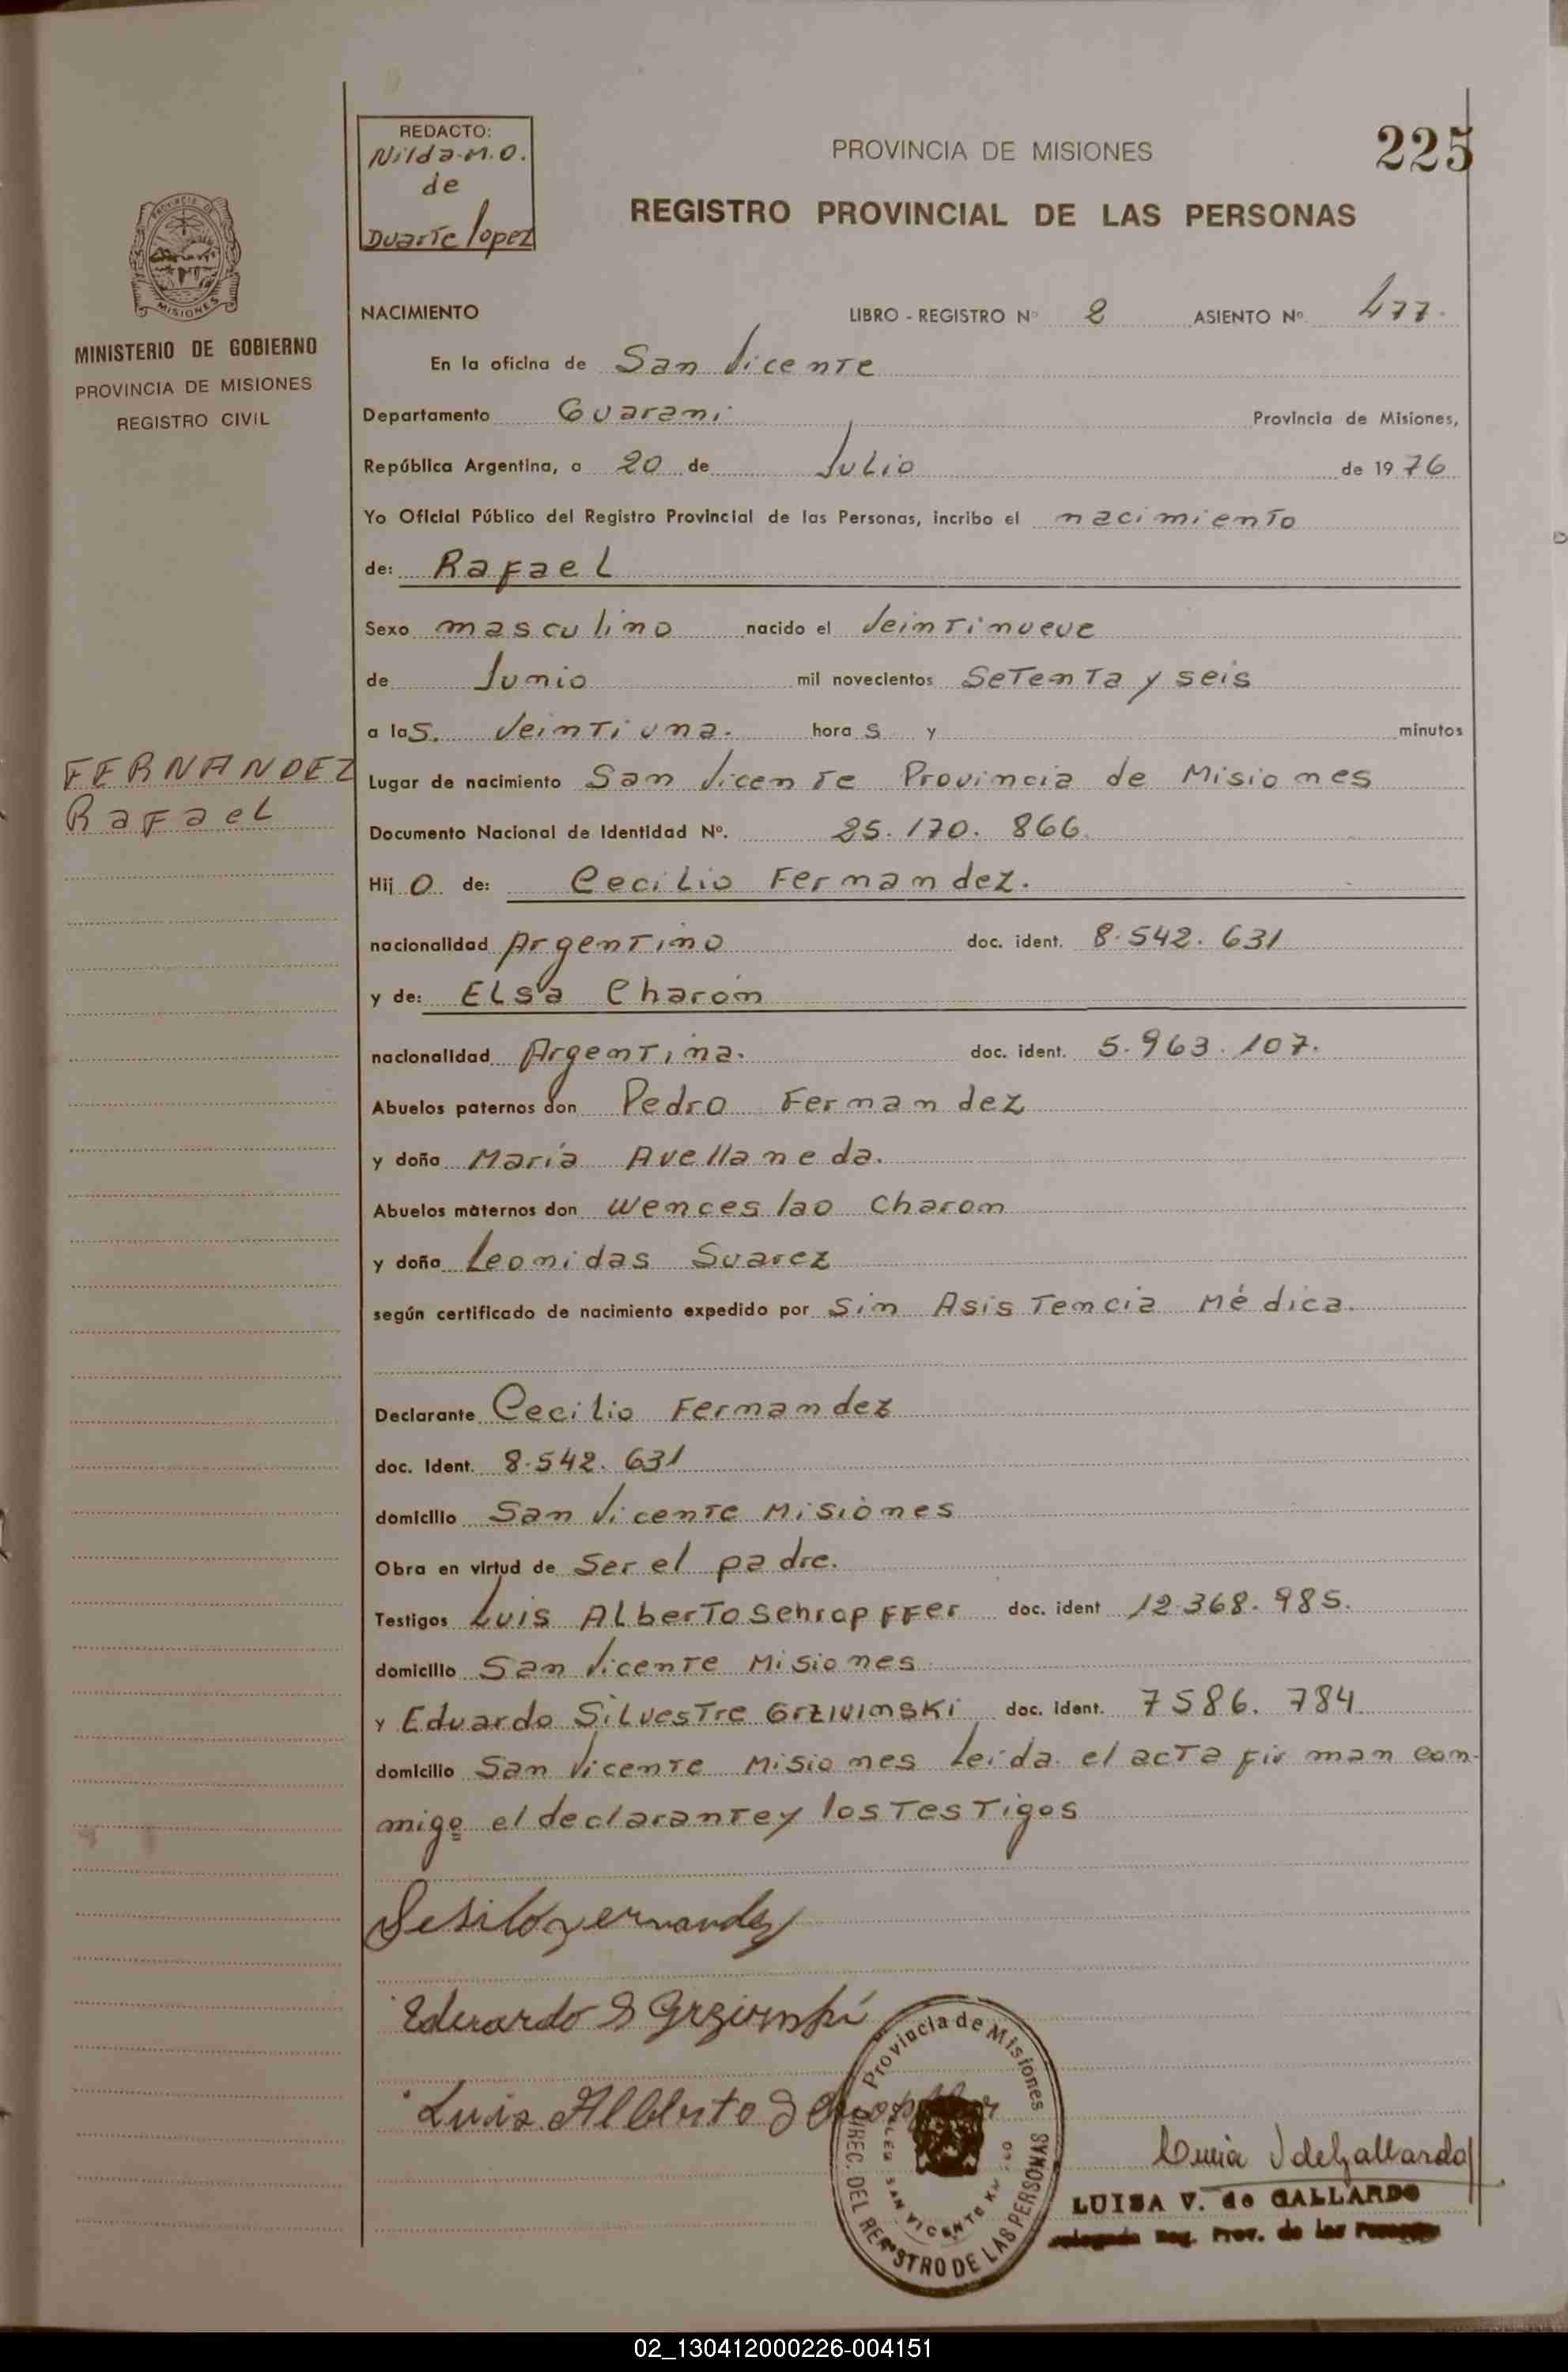 REDACTO:
Nilda M.O.
de
Duarte lopez
PROVINCIA DE MISIONES
225
REGISTRO PROVINCIAL DE LAS PERSONAS
MISIONES
MINISTERIO DE GOBIERNO
PROVINCIA DE MISIONES
REGISTRO CIVIL
NACIMIENTO LIBRO - REGISTRO Nº 2 ASIENTO Nº 477.
En la oficina de San Vicente
Departamento Guarani Provincia de Misiones,
República Argentina, a 20 de Julio de 1976
Yo Oficial Público del Registro Provincial de las Personas, incribo el nacimiento
de: Rafael
Sexo masculino nacido el Veintinueve
de Junio mil novecientos Setenta y seis
a las. Veintiuna. horas y minutos
FERNANDEZ
Rafael
Lugar de nacimiento San Vicente Provincia de Misiones
Documento Nacional de Identidad Nº. 25.170.866.
Hijo de: Cecilio Fernandez.
nacionalidad Argentino doc. ident. 8.542.631
y de: Elsa Charon
nacionalidad Argentina. doc. ident. 5.963.107.
Abuelos paternos don Pedro Fernandez
y doña María Avellaneda.
Abuelos maternos don Wenceslao Charon
y doña Leonidas Suarez
según certificado de nacimiento expedido por Sin Asistencia Médica.
Declarante Cecilio Fernandez
doc. Ident. 8.542.631
domicilio San Vicente Misiones
Obra en virtud de Ser el padre.
Testigos Luis Alberto Sehropffer doc. ident 12.368.985.
domicilio San Vicente Misiones
y Eduardo Silvestre Grzivinski doc. ident. 7586.784
domicilio San Vicente Misiones Leida el acta firman con-
migo el declarante y los Testigos
Sesilo Fernandez
Eduardo S Grzivinski
Luis Alberto
Provincia de Misiones
DIREC. DEL REGISTRO DE LAS PERSONAS
SAN VICENTE KM
LUISA V. de GALLARDO
Delegada Reg. Prov. de las Personas
02_130412000226-004151